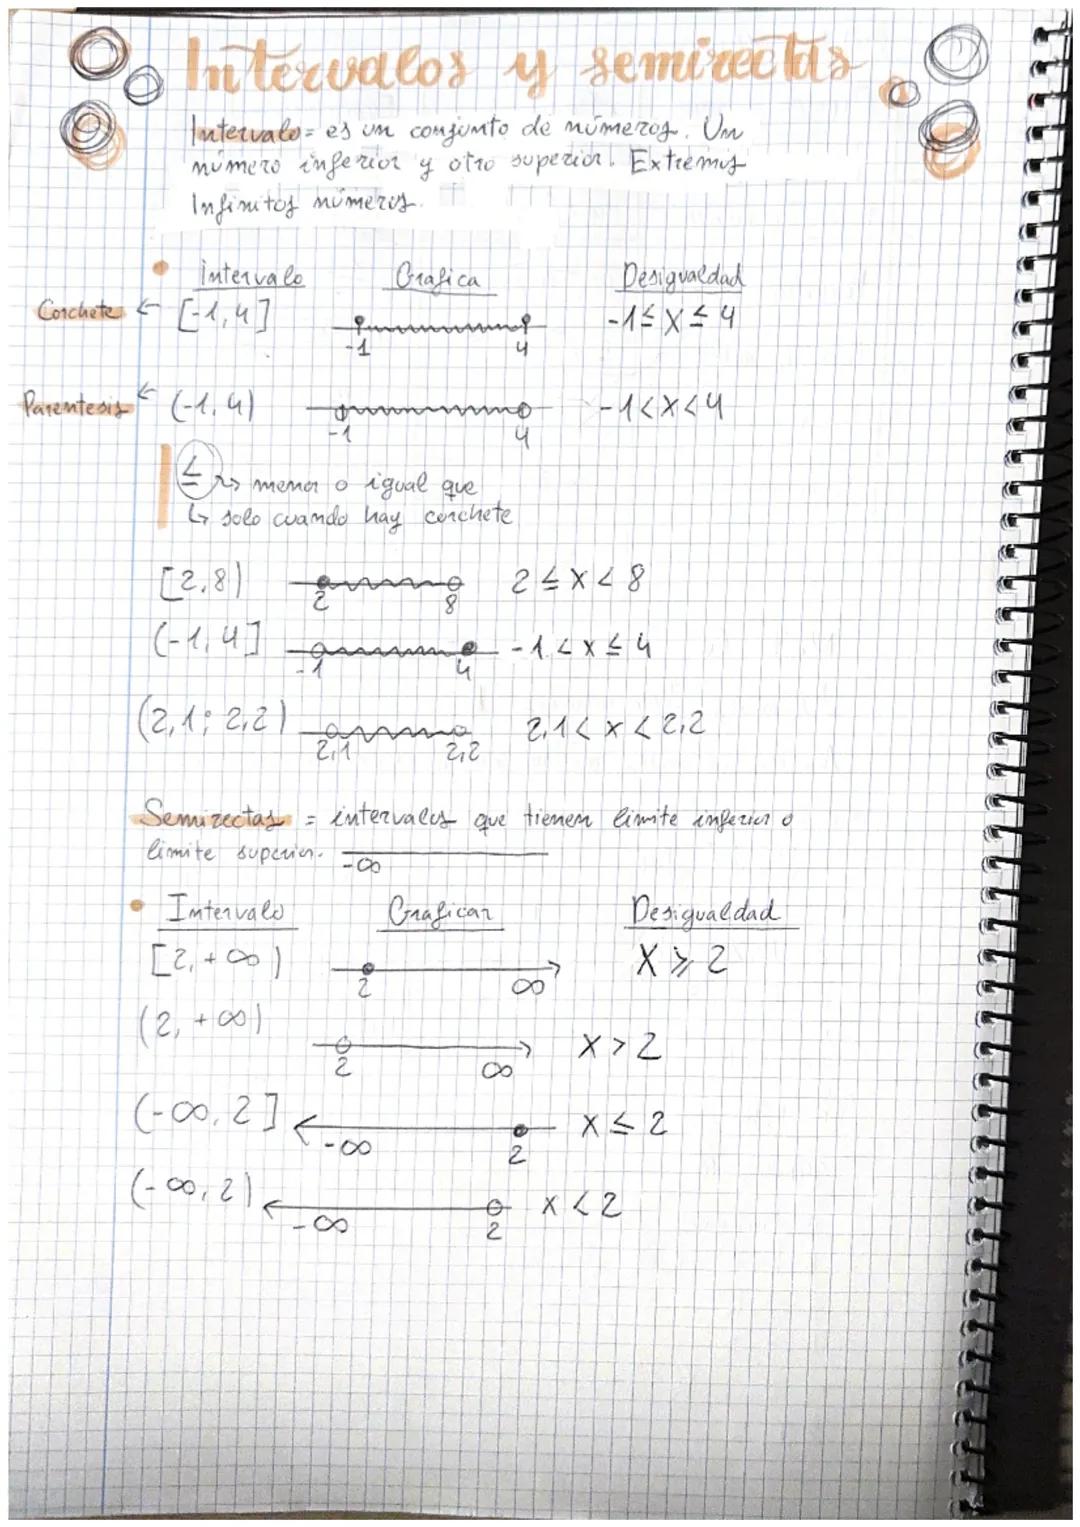 Intervalos y semirectas
Intervalo= es un conjunto de números. Un
número inferior y otro superior. Extremos
Infinitos números.
Intervalo Grafica Desigualdad
Corchete ← [-1,4] -1 4 -1≤X≤4
Parentesis ← (-1,4) -1 4 -1<X<4
≤ → menor o igual que
↳ solo cuando hay corchete
[2,8) 2 8 2≤X<8
(-1,4] -1 4 -1<X≤4
(2,1; 2,2) 2,1 2,2 2,1<x<2,2
Semirectas = intervalos que tienen limite inferior o
limite superior. -∞
Intervalo Graficar Desigualdad
[2,+∞) 2 ∞ X⩾2
(2,+∞) 2 ∞ X>2
(-∞,2] -∞ 2 X≤2
(-∞,2) -∞ 2 X<2